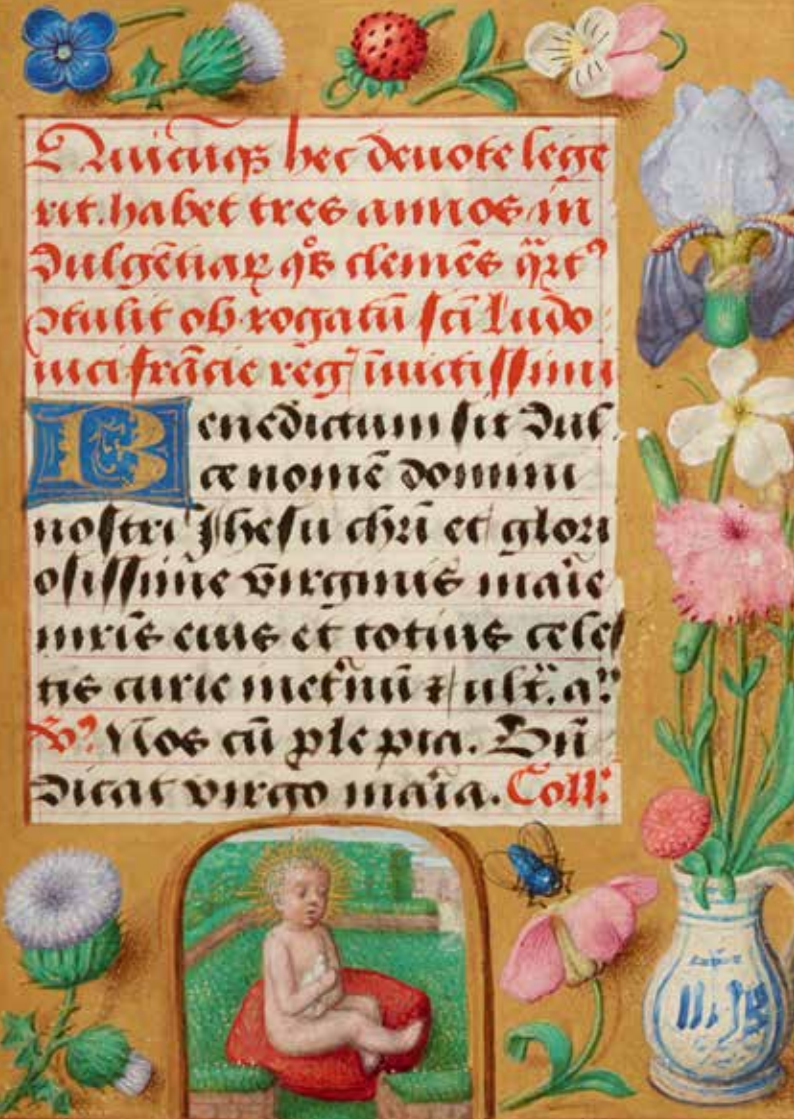 Quicūq₃ hec deuote lege
rit. habet tres annos in
dulgētiarꝝ qͦs clemēs q̄rtꝰ
ꝯtulit ob rogatū sc̄i Ludo
uici frācie reḡ inuictissimi
Benedictum sit dul
ce nomē domini
nostri Jhesu chr̄i et glori
osissime virginis marīe
mr̄is eius et totius celes
tis curie inet̄nū ⁊ ult̄. a
℣ Nos cū ꝓle pia. Bn̄
dicat virgo marīa. Coll.